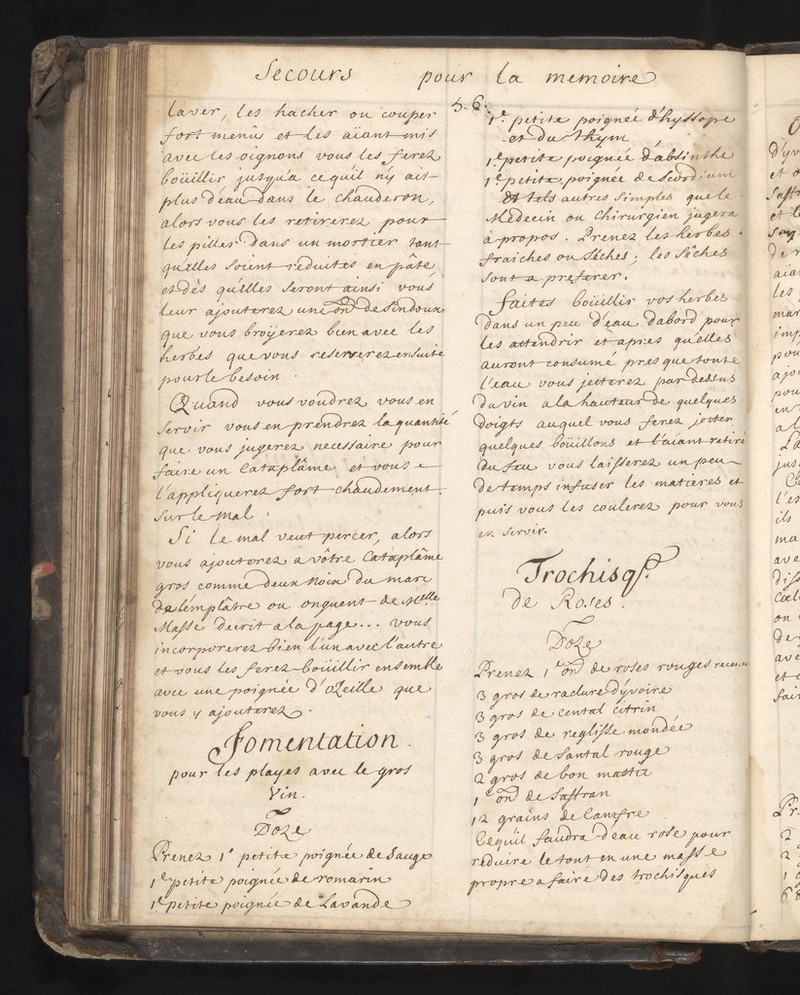 Secours pour la memoire
5.6.
laver, les hacher ou couper
fort menüs et les aïant mis
avec les oignons vous les ferez
boüillir jusqu'a cequ'il n'y ait
plus d'eau dans le chauderon,
alors vous les retirerez pour
les piller dans un mortier tant
qu'elles soient reduites en pâte,
et dès qu'elles seront ainsi vous
leur ajouterez une on de Sindoux
que vous broÿerez bien avec les
herbes que vous reserverez ensuite
pour le besoin.
Quand vous voudrez vous en
servir vous en prendrez la quantité
que vous jugerez necessaire pour
faire un Cataplâme et vous
l'appliquerez fort chaudement
sur le mal.
Si le mal veut percer, alors
vous ajouterez a vôtre Cataplâme
gros comme deux Noix du marc
de l'emplâtre ou onguent de Melle
Masse decrit a la page... vous
incorporerez bien l'un avec l'autre
et vous les ferez boüillir ensemble
avec une poignée d'ozeille que
vous y ajouterez.
Fomentation
pour les playes avec le gros
Vin.
Doze
Prenez 1e petite poignée de Sauge
1e petite poignée de romarin
1e petite poignée de Lavande
1e petite poignée d'hyssope
et du Thym
1e petite poignée d'absinthe
1e petite poignée de Scordium
Et tels autres simples que le
Medecin ou Chirurgien jugera
a propos. Prenez les herbes
fraiches ou séches; les séches
sont a preferer.
faites boüillir vos herbes
dans un peu d'eau d'abord pour
les attendrir et apries qu'elles
auront consumé presque toute
l'eau vous jetterez par dessus
du vin a la hauteur de quelques
doigts auquel vous ferez jetter
quelques boüillons et l'aiant retiré
du feu vous laisserez un peu
de temps infuser les matieres et
puis vous les coulerez pour vous
en servir.
Trochisqs.
de Roses.
Doze
Prenez 1e on de roses rouges
3 gros de raclure d'yvoire
3 gros de cental citrin
3 gros de reglisse mondée
3 gros de Santal rouge
2 gros de bon mastic
1 on de Saffran
12 grains de Camfre
Cequ'il faudra d'eau rose pour
reduire le tout en une masse
propre a faire des trochisques